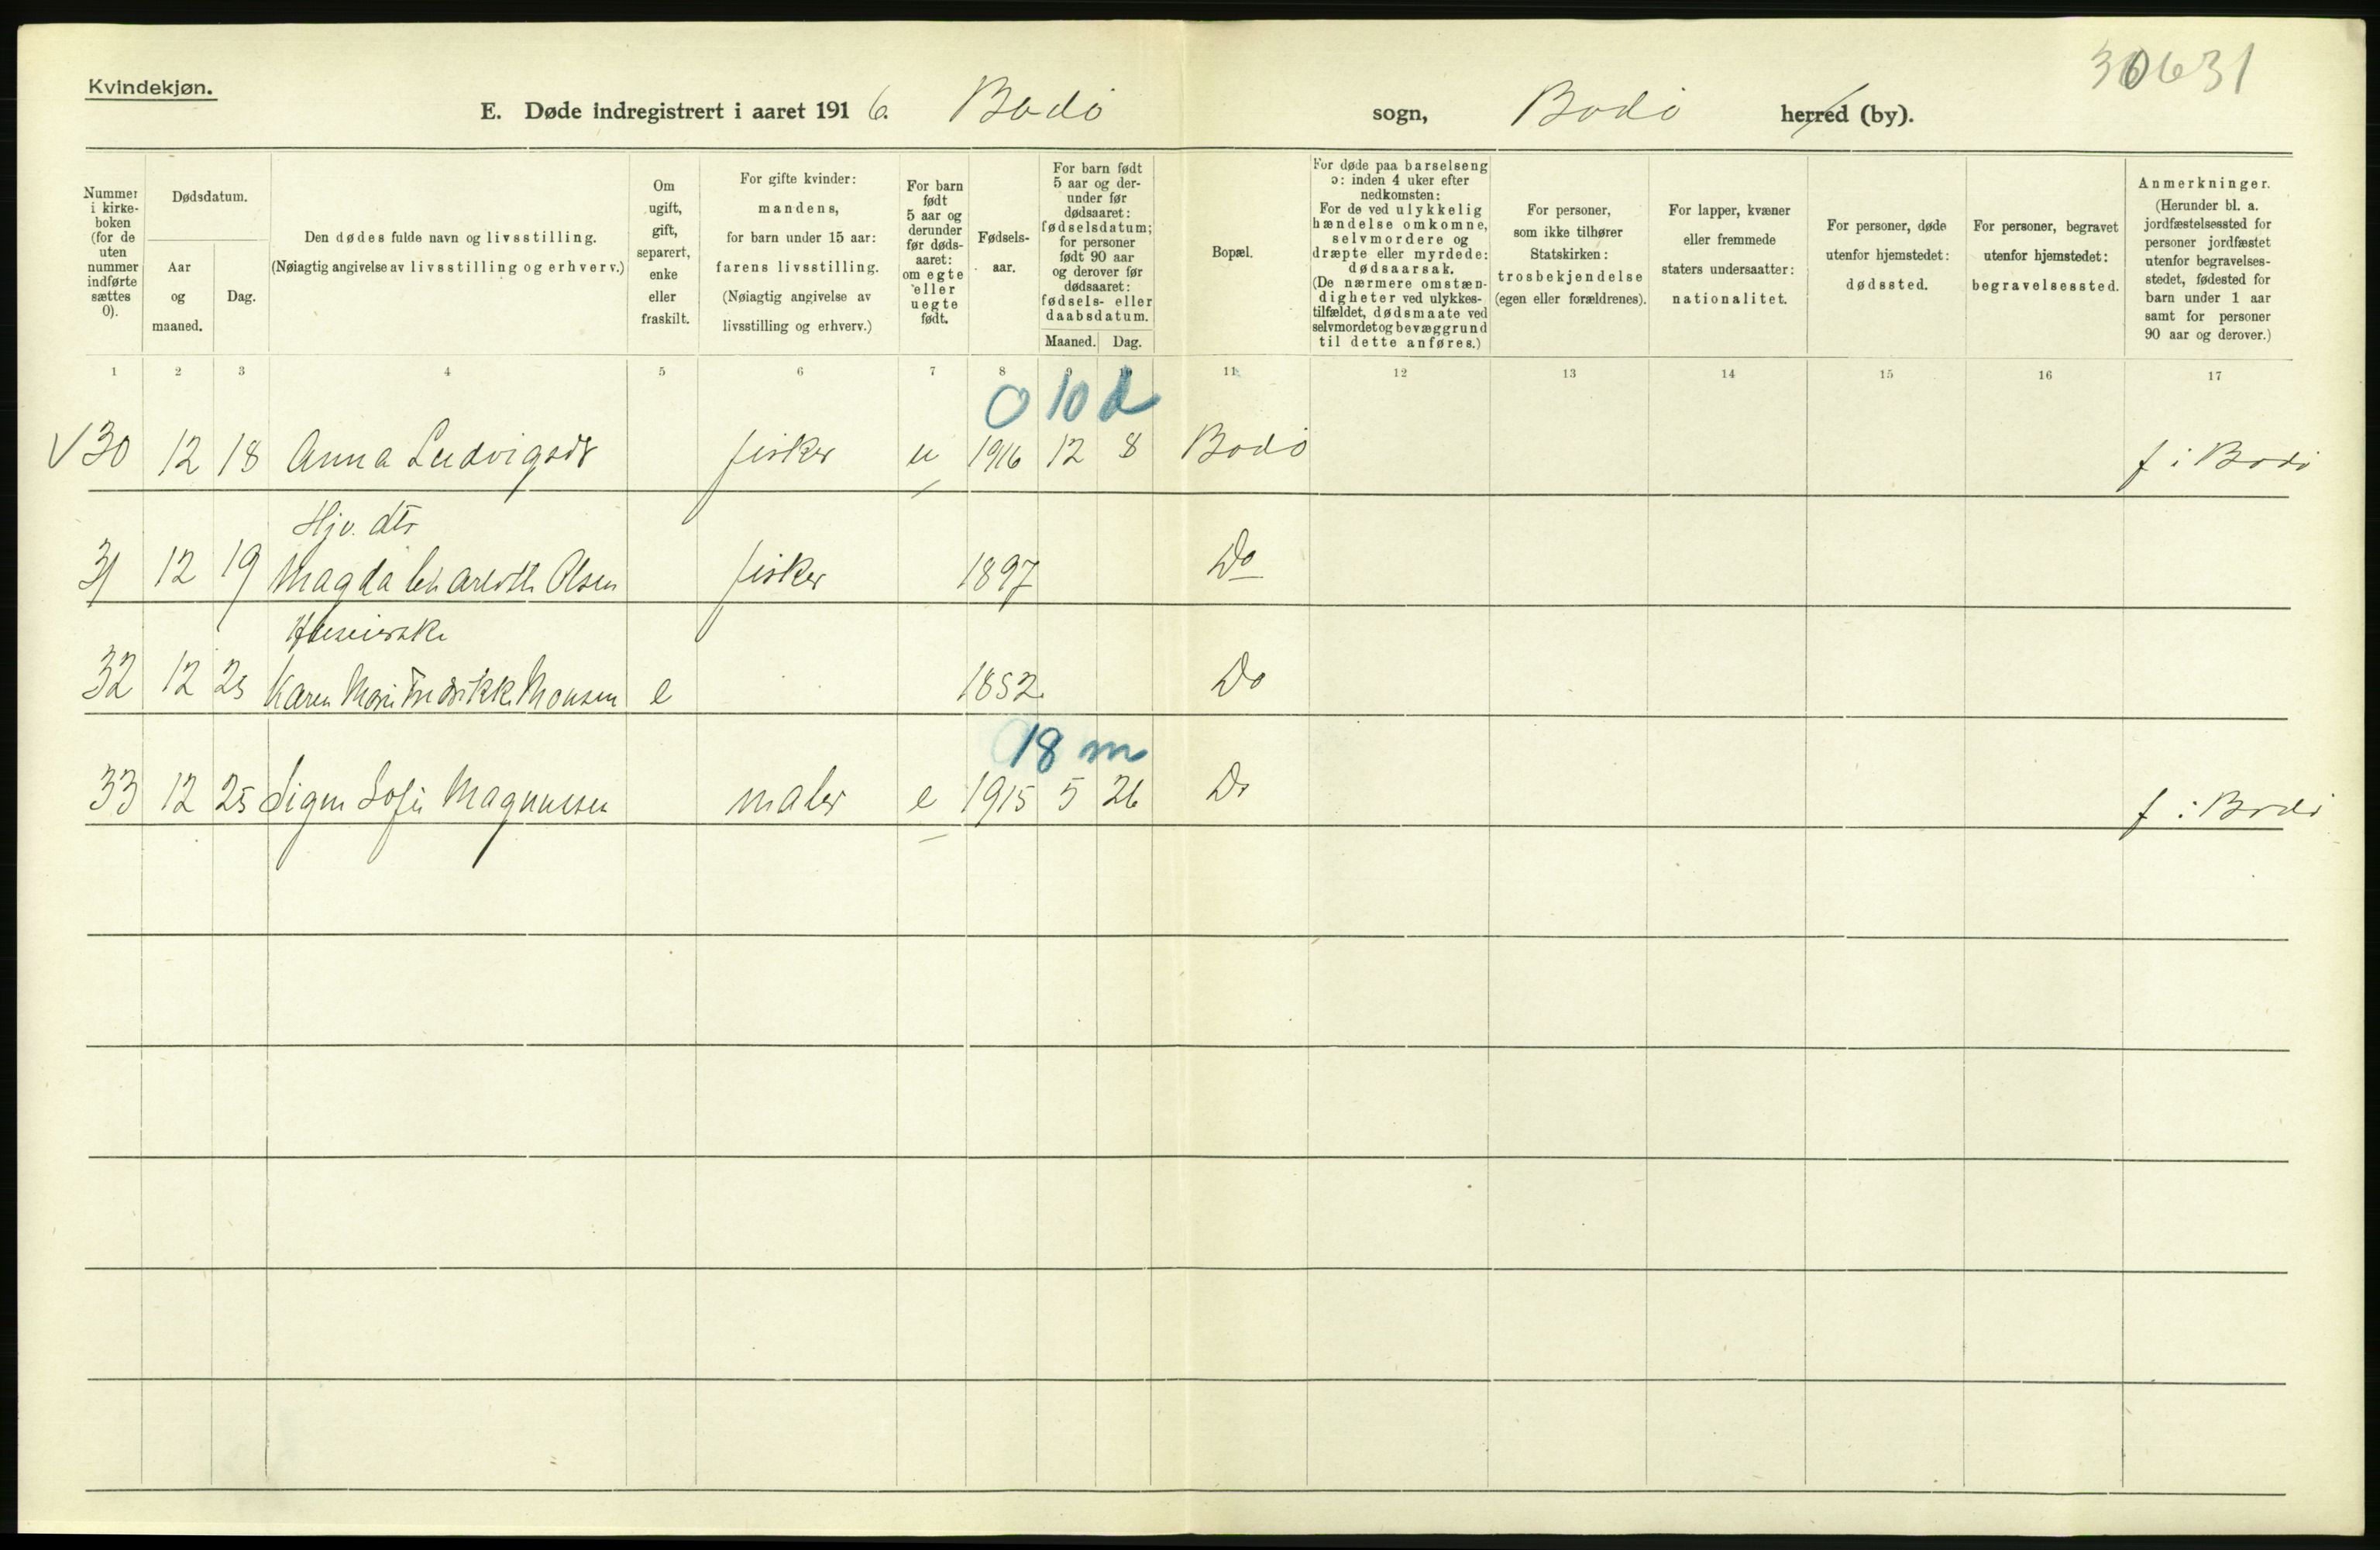 30631
Kvindekjøn.
E. Døde indregistrert i aaret 1916. Bodö sogn, Bodö herred (by).
Nummer i kirke-boken (for de uten nummer indførte sættes 0).
Dødsdatum.
Aar og maaned.
Dag.
Den dødes fulde navn og livsstilling.
(Nøiagtig angivelse av livsstilling og erhverv.)
Om ugift, gift, separert, enke eller fraskilt.
For gifte kvinder: mandens, for barn under 15 aar: farens livsstilling. (Nøiagtig angivelse av livsstilling og erhverv.)
For barn født 5 aar og derunder før døds-aaret: om egte eller uegte født.
Fødsels-aar.
For barn født 5 aar og der-under før dødsaaret: fødselsdatum; for personer født 90 aar og derover før dødsaaret: fødsels- eller daabsdatum.
Maaned. Dag.
Bopæl.
For døde paa barselseng ɔ: inden 4 uker efter nedkomsten: For de ved ulykkelig hændelse omkomne, selvmordere og dræpte eller myrdede: dødsaarsak. (De nærmere omstæn-digheter ved ulykkes-tilfældet, dødsmaate ved selvmordet og bevæggrund til dette anføres.)
For personer, som ikke tilhører Statskirken: trosbekjendelse (egen eller forældrenes).
For lapper, kvæner eller fremmede staters undersaatter: nationalitet.
For personer, døde utenfor hjemstedet: dødssted.
For personer, begravet utenfor hjemstedet: begravelsessted.
Anmerkninger. (Herunder bl. a. jordfæstelsessted for personer jordfæstet utenfor begravelses-stedet, fødested for barn under 1 aar samt for personer 90 aar og derover.)
1 2 3 4 5 6 7 8 9 10 11 12 13 14 15 16 17
0 10 d
V 30 12 18 Anna Ludvigsdr fisker u 1916 12 8 Bodö f i Bodö
Hjv. dtr
31 12 19 Magda Olsen fisker 1897 Do
Huseierske
32 12 23 Karen Marie Fredrikke Monsen e 1852 Do
18 m
33 12 25 Signe Sofie Magnussen maler e 1915 5 26 Do f i Bodö